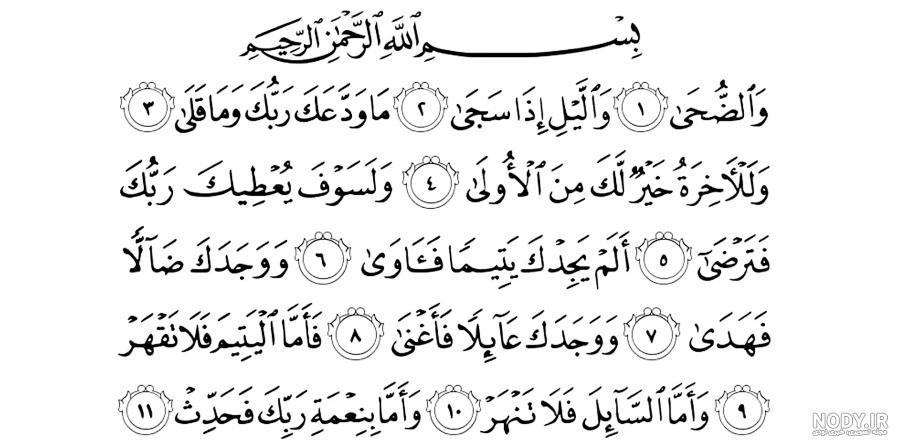 بِسْمِ ٱللَّهِ ٱلرَّحْمَٰنِ ٱلرَّحِيمِ
وَٱلضُّحَىٰ ١ وَٱلَّيْلِ إِذَا سَجَىٰ ٢ مَا وَدَّعَكَ رَبُّكَ وَمَا قَلَىٰ ٣
وَلَلْأَخِرَةُ خَيْرٌ لَّكَ مِنَ ٱلْأُولَىٰ ٤ وَلَسَوْفَ يُعْطِيكَ رَبُّكَ
فَتَرْضَىٰٓ ٥ أَلَمْ يَجِدْكَ يَتِيمًا فَـَٔاوَىٰ ٦ وَوَجَدَكَ ضَآلًّا
فَهَدَىٰ ٧ وَوَجَدَكَ عَآئِلًا فَأَغْنَىٰ ٨ فَأَمَّا ٱلْيَتِيمَ فَلَا تَقْهَرْ
٩ وَأَمَّا ٱلسَّآئِلَ فَلَا تَنْهَرْ ١٠ وَأَمَّا بِنِعْمَةِ رَبِّكَ فَحَدِّثْ ١١
NODY.IR